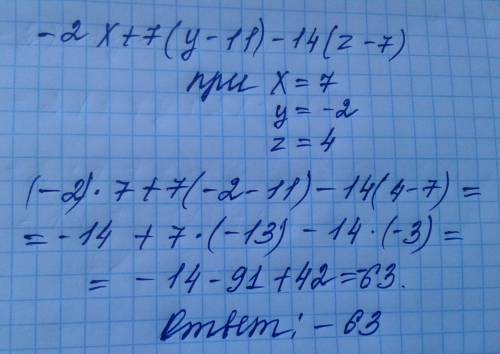 -2x+7(y-11)-14(z-7)
при x=7
y=-2
z=4
(-2)·7+7(-2-11)-14(4-7)=
=-14+7·(-13)-14·(-3)=
=-14-91+42=-63.
Ответ: -63